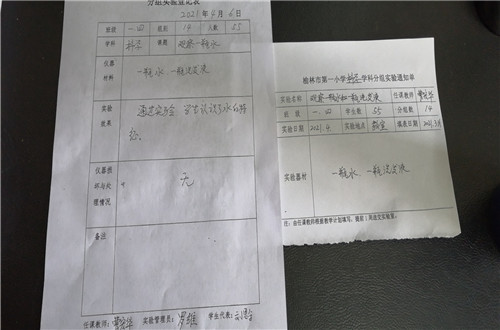 分组实验登记表
2021年4月6日
班级 一.四 组别 14 人数 55
学科 科学 课题 观察一瓶水
仪器
材料
一瓶水 一瓶洗发液
实验
效果
通过实验 学生认识了水的特
征.
仪器损
坏与处
理情况
无
备注
任课教师: 实验管理员: 罗雄 学生代表:
榆林市第一小学科学学科分组实验通知单
实验名称 观察一瓶水和一瓶洗发液 任课教师
班 级 一.四 学生数 55 分组数 14
实验日期 2021.4 实验地点 教室 填表日期 2021.3.8
实验器材
一瓶水、一瓶洗发液
注:由任课教师根据教学计划填写,提前1周送交实验室。